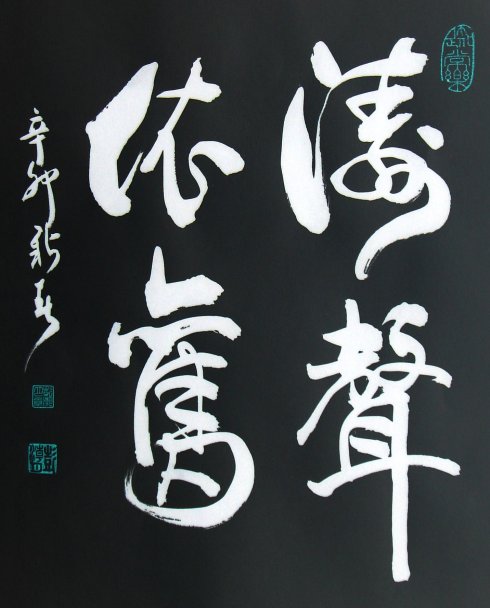 濤聲
依舊
辛卯新春